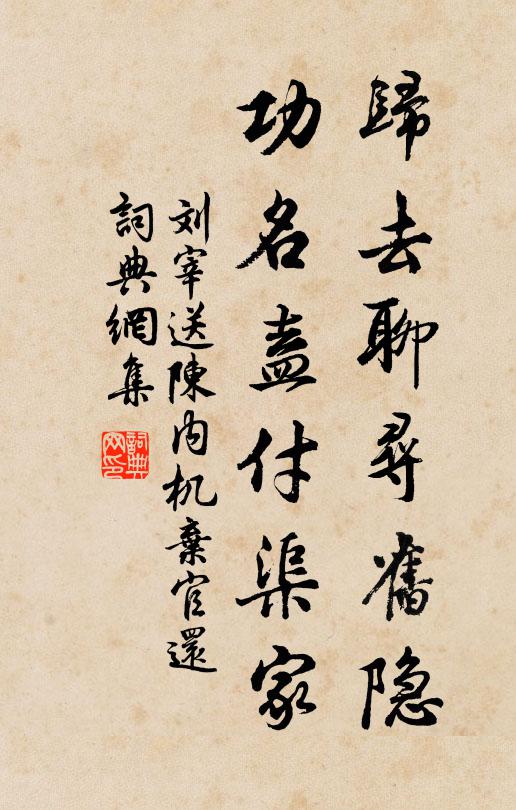 歸去聊尋舊隐
功名盍付渠家
刘宰送陳内机棄官還
詞典網集
詞典網印